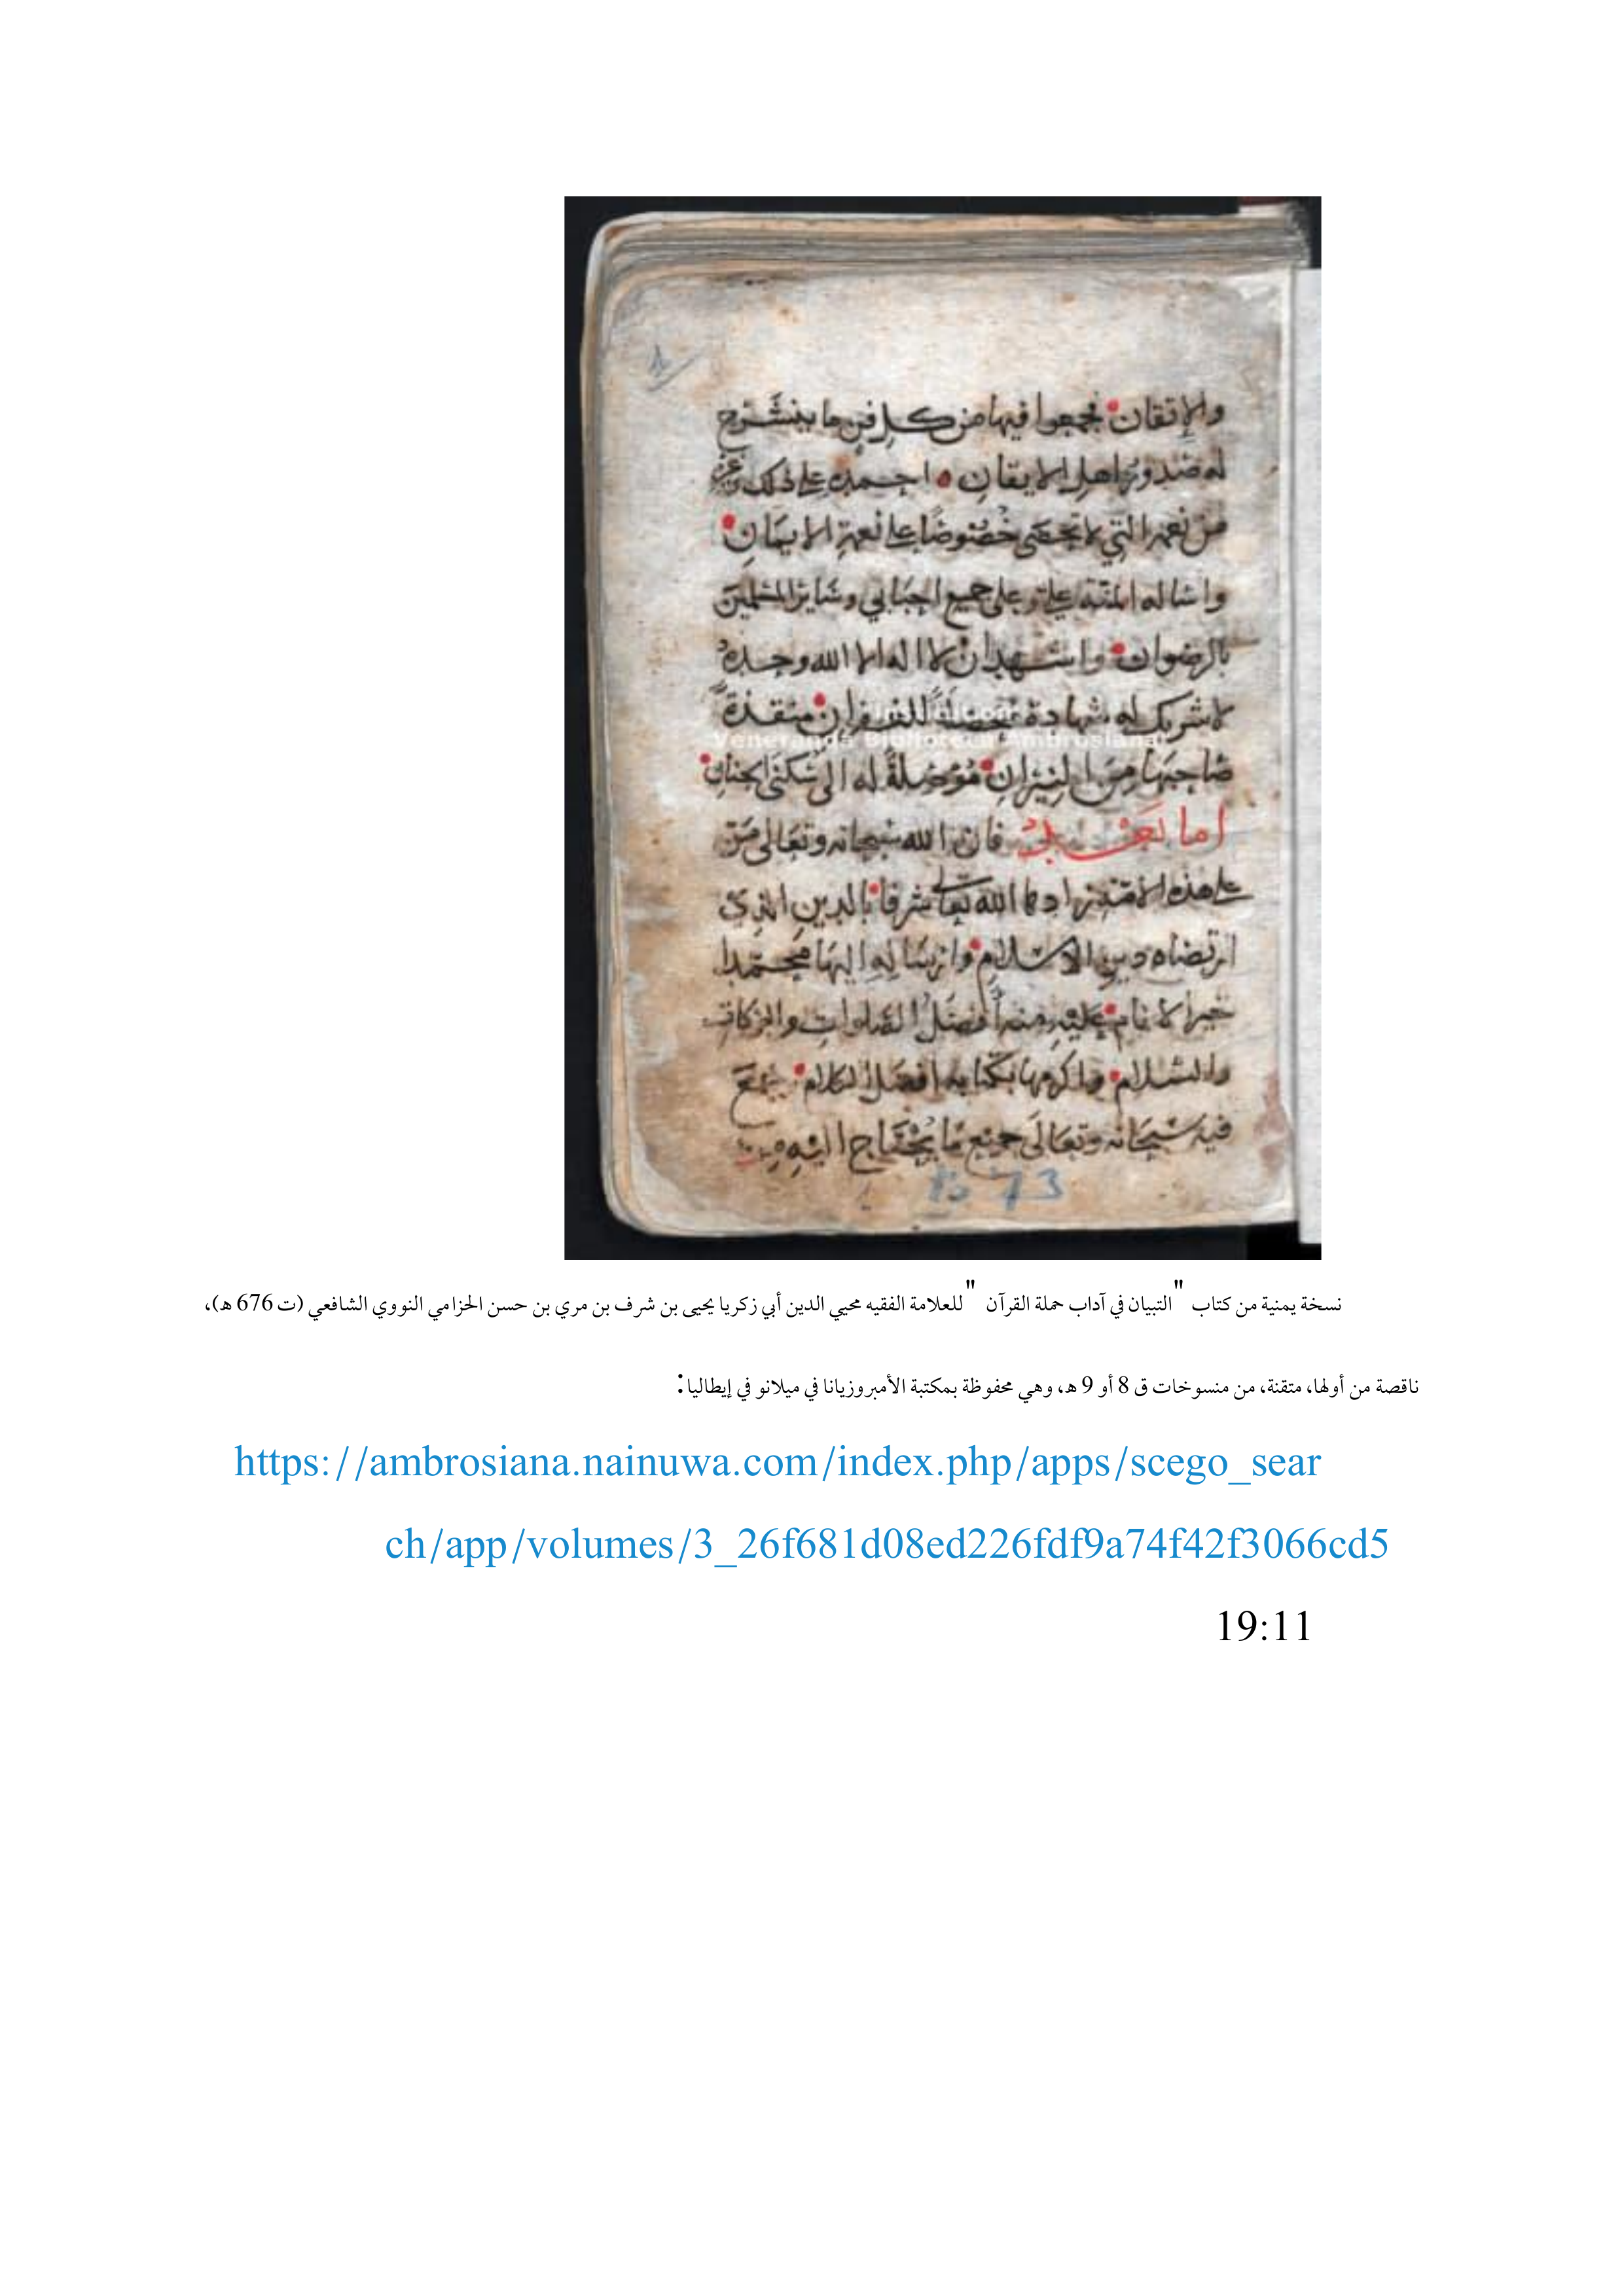 والإتقان فجمعوا فيها من كل فن ما ينشرح
له صدور اهل الايقان احمده على ذلك وغيره
من نعمه التي لا تحصى خصوصا على نعمة الايمان
واساله المنة علي وعلى جميع احبابي وسائر المسلمين
بالرضوان واشهد ان لا اله الا الله وحده
لا شريك له شهادة محصلة للغفران منقذة
صاحبها من النيران موصلة له الى سكنى الجنان
اما بعد فان الله سبحانه وتعالى من
على هذه الامة زادها الله تعالى شرفا بالدين الذي
ارتضاه دين الاسلام وارساله اليها محمدا
خير الانام عليه منه افضل الصلوات والبركات
والسلام واكرمها بكتابه افضل الكلام جمع
فيه سبحانه وتعالى جميع ما يحتاج اليه من
1573
Veneranda Biblioteca Ambrosiana
نسخة يمنية من كتاب "التبيان في آداب حملة القرآن" للعلامة الفقيه محيي الدين أبي زكريا يحيى بن شرف بن مري بن حسن الحزامي النووي الشافعي (ت 676 هـ)،
ناقصة من أولها، متقنة، من منسوخات ق 8 أو 9 هـ، وهي محفوظة بمكتبة الأمبروزيانا في ميلانو في إيطاليا:
https://ambrosiana.nainuwa.com/index.php/apps/scego_sear
ch/app/volumes/3_26f681d08ed226fdf9a74f42f3066cd5
19:11